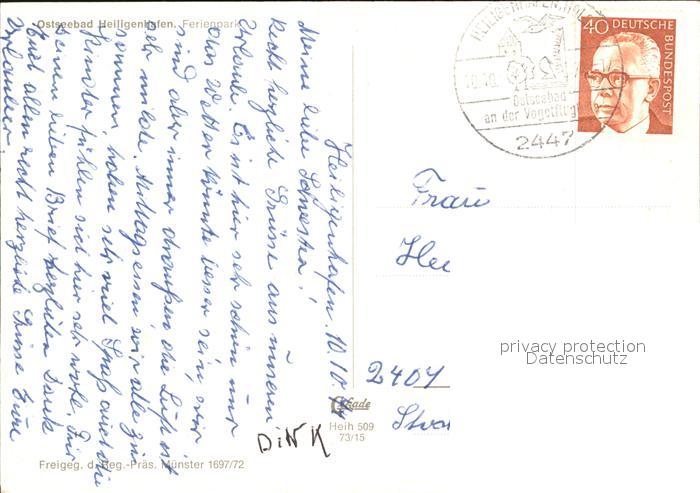 Ostseebad Heiligenhafen, Ferienpark
Heiligenhafen, 10.10.
Meine liebe Schwester!
Recht herzliche Grüße aus unserm
Urlaub. Es ist hier sehr schön nur
das Wetter könnte besser sein, wir
sind aber immer draußen, die Luft ist
sehr milde. Mittagessen wir alle zu
sammen, haben sehr viel Spaß und die
Kinder fühlen sich hier sehr wohl. Für
Deinen lieben Brief herzlichen Dank
Euch allen recht herzliche Grüße Eure
Urlauber
Freigeg. d. Reg.-Präs. Münster 1697/72
DiNK
Schade
Heih 509
73/15
HEILIGENHAFEN
10.10.
Ostseebad
an der Vogelfluglinie
2447
40 DEUTSCHE
BUNDESPOST
Frau
Hei
2401
privacy protection
Datenschutz